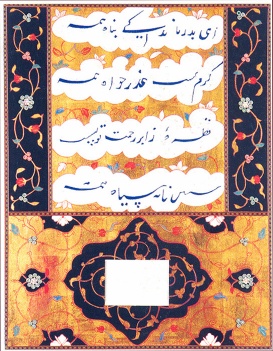 ای بدرماندگی پناه همه
کرم تست عذر خواه همه
قطرهٔ ز ابر رحمت تو بست
شستن نامه سیاه همه